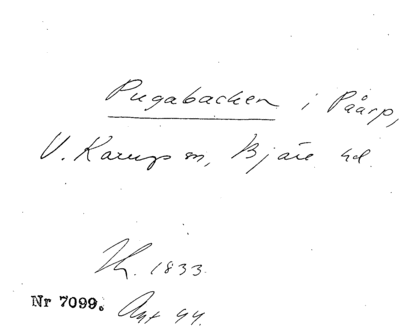 Pugabacken i Påarp,
V. Karups sn, Bjäre hd.
Th. 1833.
Nr 7099. Ant 44.